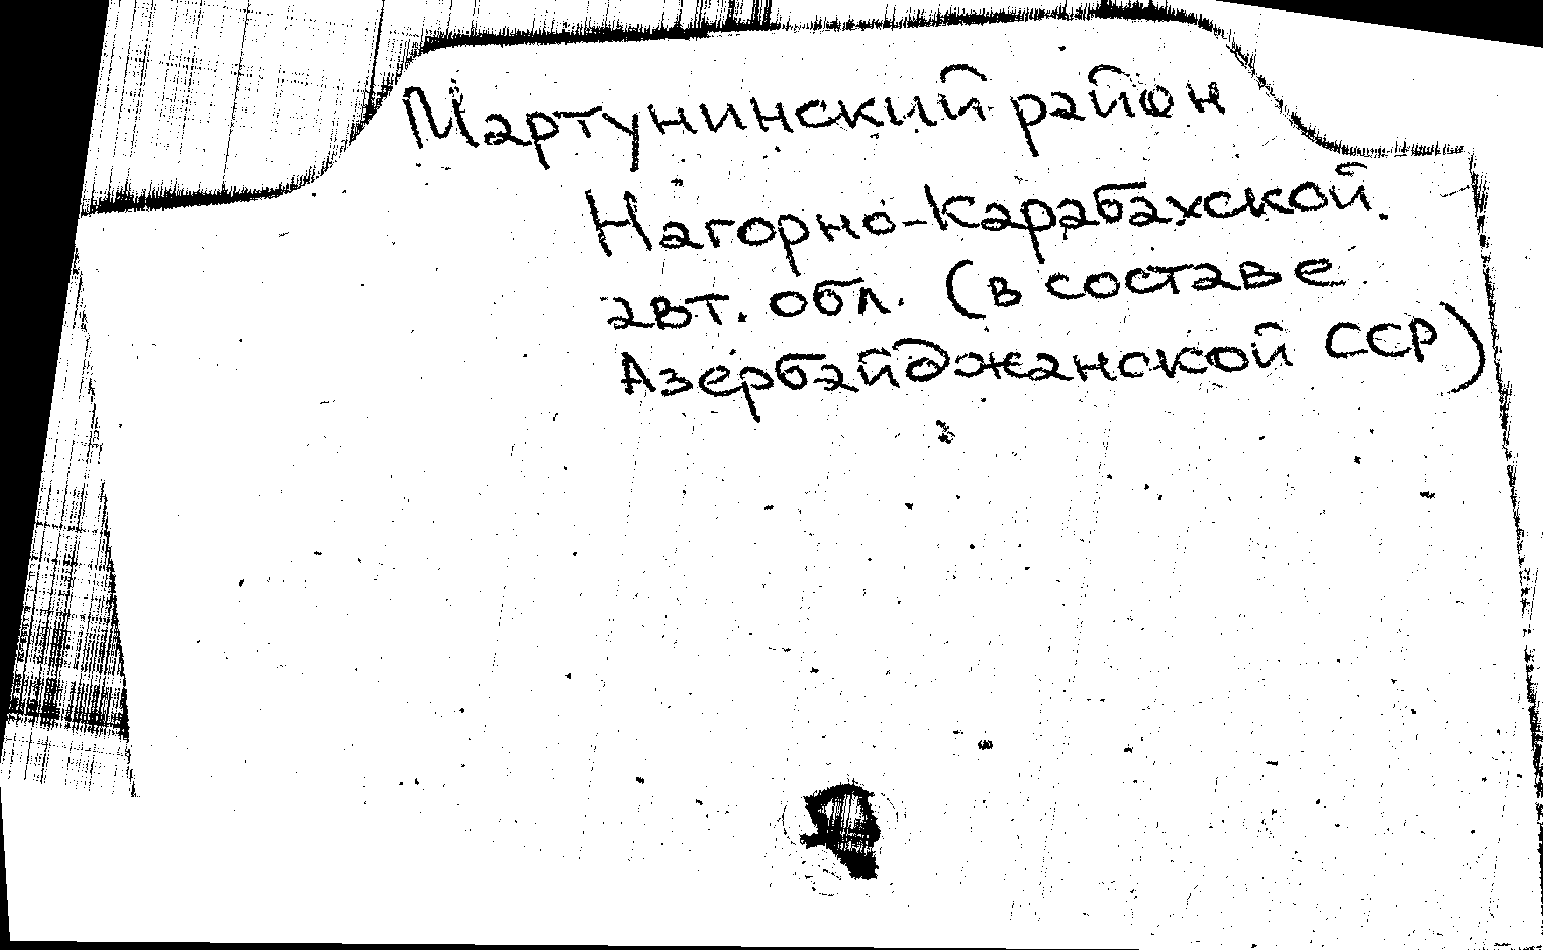 Мартунинский район
Нагорно-Карабахской
авт. обл. (в составе
Азербайджанской ССР)